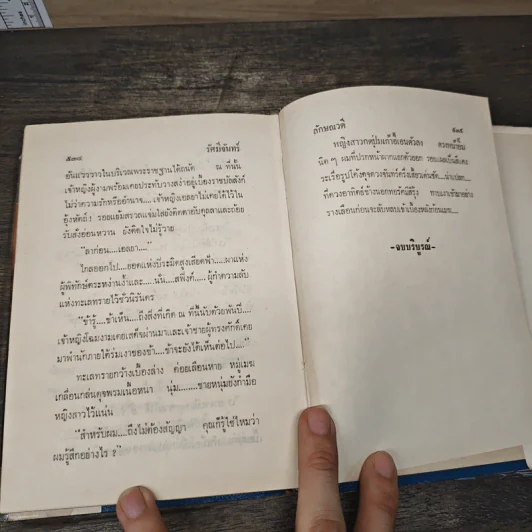 ๕๓๘ รัศมีจันทร์
อันแวววาวในบริเวณพระราชฐานได้ถนัด ณ ที่นั้น
เจ้าหญิงผู้งามพร้อมเคยประทับวางสง่าอยู่เบื้องราชบัลลังก์
ไม่ว่าความรักหรืออำนาจ.... เจ้าหญิงเอลยาไม่เคยได้ไว้ใน
อุ้งหัตถ์! รอยแย้มสรวลแจ่มใสยังติดตายับคูคลาและถ้อย
รับสั่งอ่อนหวาน ยังติดใจไม่รู้วาย
"ลาก่อน....เอลยา...."
ไกลออกไป....ยอดแห่งบีระมิดสูงเสียดฟ้า.....ผาแห่ง
ผู้พิทักษ์ตระหง่านง้ำและ.....นั่น....สฟิงค์.....ผู้กำความลับ
แห่งทะเลทรายไว้ชั่วนิรันดร
"ข้ารู้....ข้าเห็น....ถึงสิ่งที่เกิด ณ ที่นี้นับด้วยพันปี....
เจ้าหญิงโฉมงามเคยเสด็จผ่านมาและเจ้าชายผู้ทรงศักดิ์เคย
มาพำนักภายใต้ร่มเงาของข้า....ข้าจะยังได้เห็นต่อไป...."
ทะเลทรายกว้างเบื้องล่าง ค่อยเลือนหาย หมู่เมฆ
เกลื่อนกล่นดุจพรมเนื้อหนา นุ่ม........ชายหนุ่มยังกำมือ
หญิงสาวไว้แน่น
"สำหรับผม....ถึงไม่ต้องสัญญา คุณก็รู้ใช่ไหมว่า
ผมรู้สึกอย่างไร ?"
ลักษณวดี ๕๓๙
หญิงสาวกดปุ่มเก้าอี้เอนตัวลง ดวงหน้ายิ้ม
นิด ๆ ผมที่ปรกหน้าผากแยกตัวออก รอยแผลเป็นสีแดง
ระเรื่อรูปโค้งดุจดวงจันทร์ครึ่งเสี้ยวเด่นชัด....
ที่ดวงอาทิตย์ข้างนอกทอรัศมีรุ้ง ทาบแก้มสีชาอย่าง
รางเลือนก่อนจะลับหลบเข้าเบื้องหลังก้อนเมฆ....
-จบบริบูรณ์-